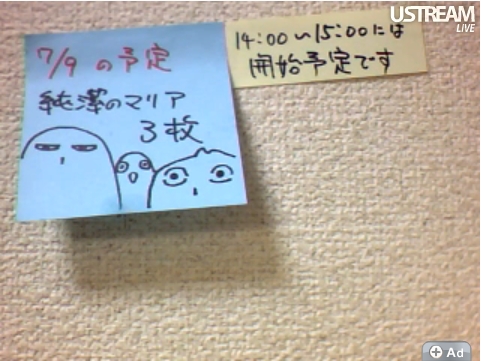 7/9 の予定
純潔のマリア
3枚
14:00~15:00には
開始予定です
USTREAM
LIVE
Ad